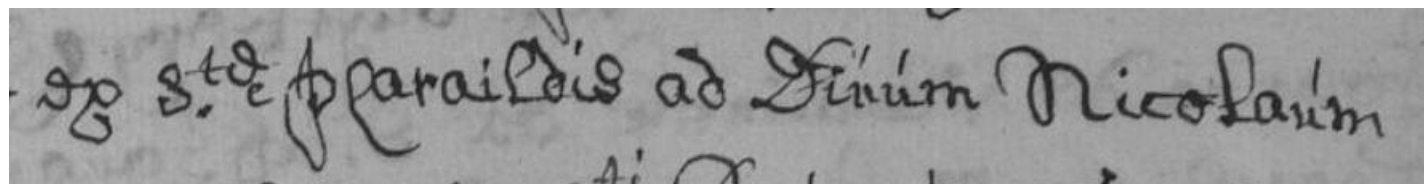 ex S.tae Pharaildis ad Diuum Nicolaum